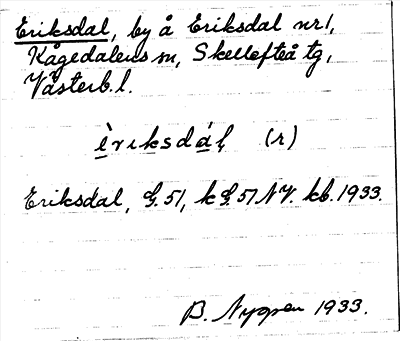 Eriksdal, by å Eriksdal nr 1,
Kågedalens sn, Skellefteå tg,
Västerb. l.
èriksdál (r)
Eriksdal, G. 51, k G. 51 NV. kb. 1933.
B. Nygren 1933.